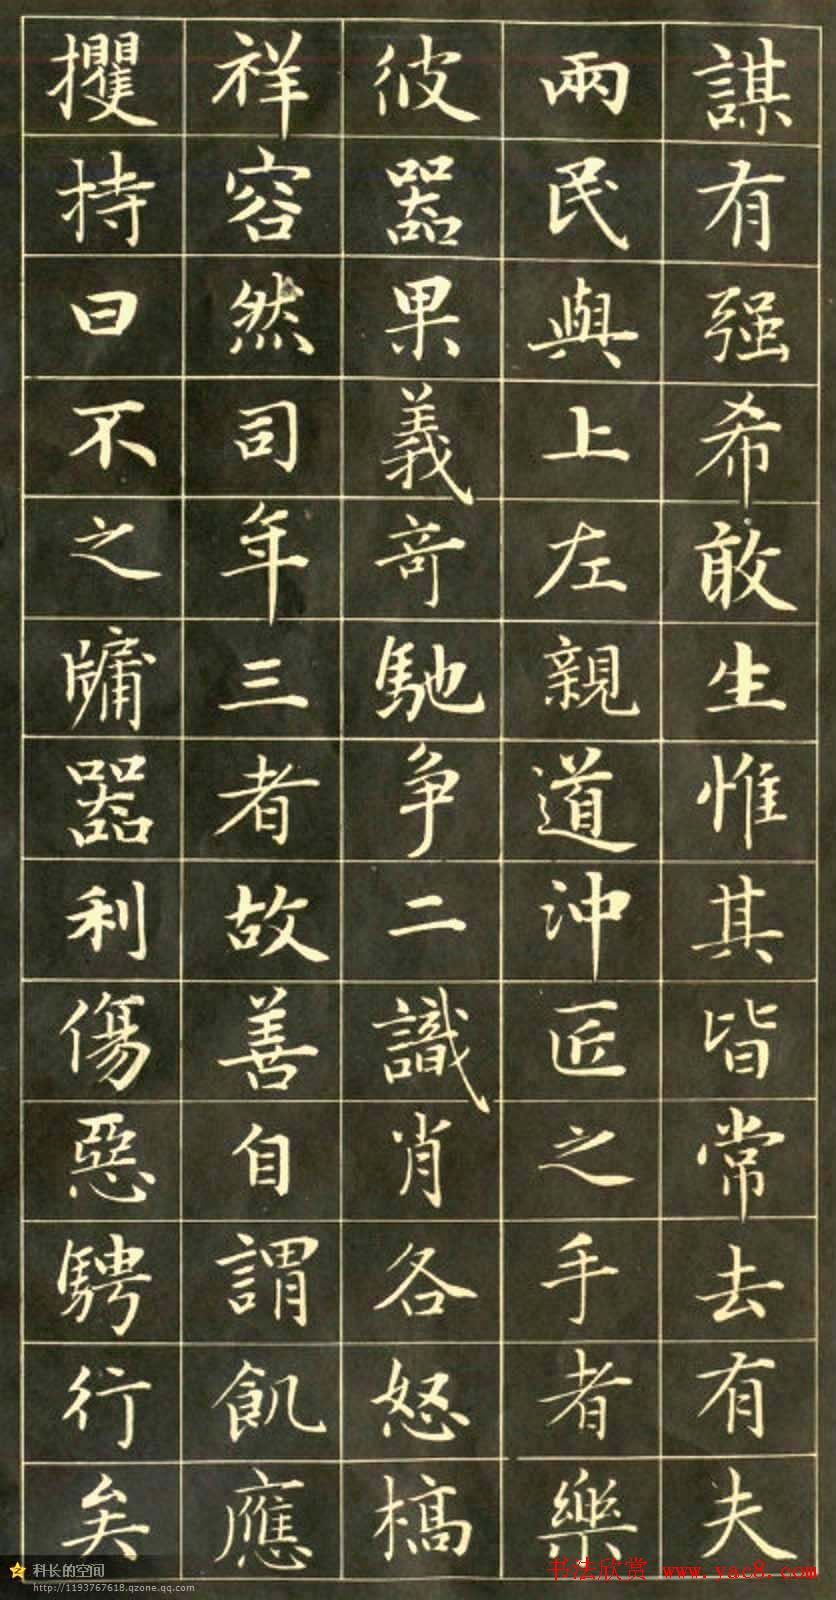 謀有强希敢生惟其皆常去有夫
兩民與上左親道沖匠之手者樂
彼器果義竒馳争二識肖各怒槁
祥容然司年三者故善自謂飢應
攫持曰不之牗器利傷惡騁行矣
科长的空间
http://1193767618.qzone.qq.com
书法欣赏 www.yac8.com